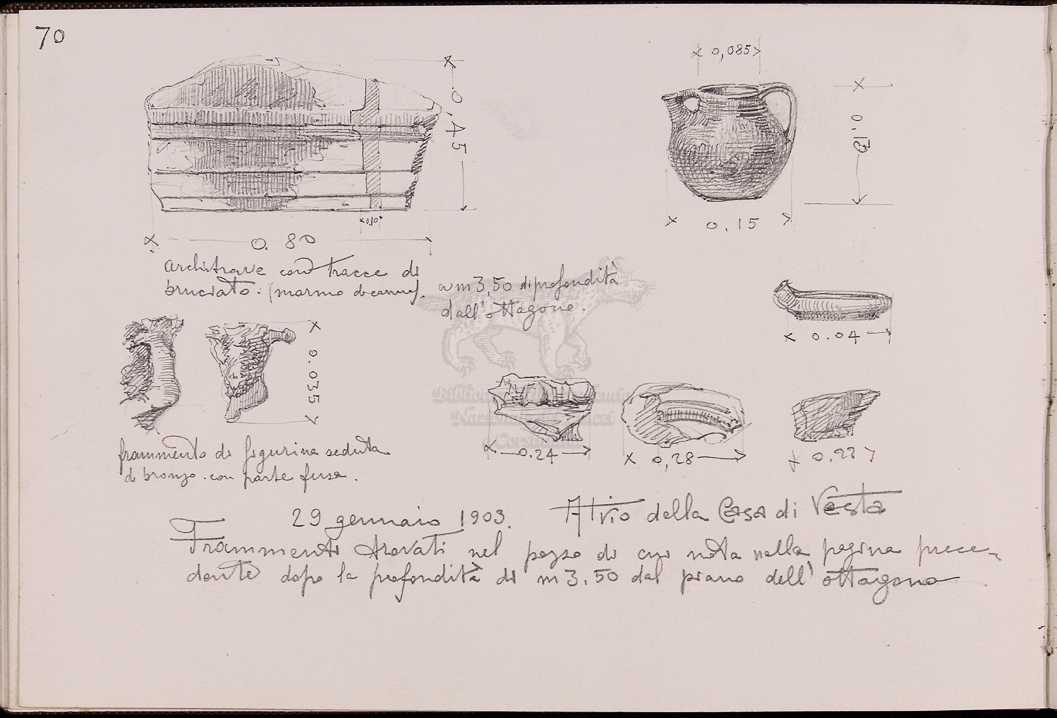 70
0,085
0.45
0.13
0,10
0.15
0.80
architrave con tracce di
bruciato. (marmo
a m 3,50 di profondità
dall'ottagono.
0.04
0.035
0.24
0,28
0.22
frammento di figurina seduta
di bronzo. con parte fusa.
29 gennaio 1903. Atrio della Casa di Vesta
Frammenti trovati nel pozzo di cui nota nella pagina prece-
dente dopo la profondità di m 3.50 dal piano dell'ottagono